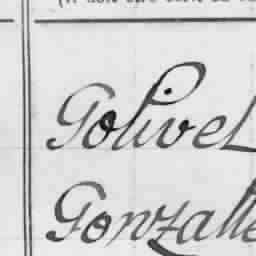 Golivel
Gonzalle